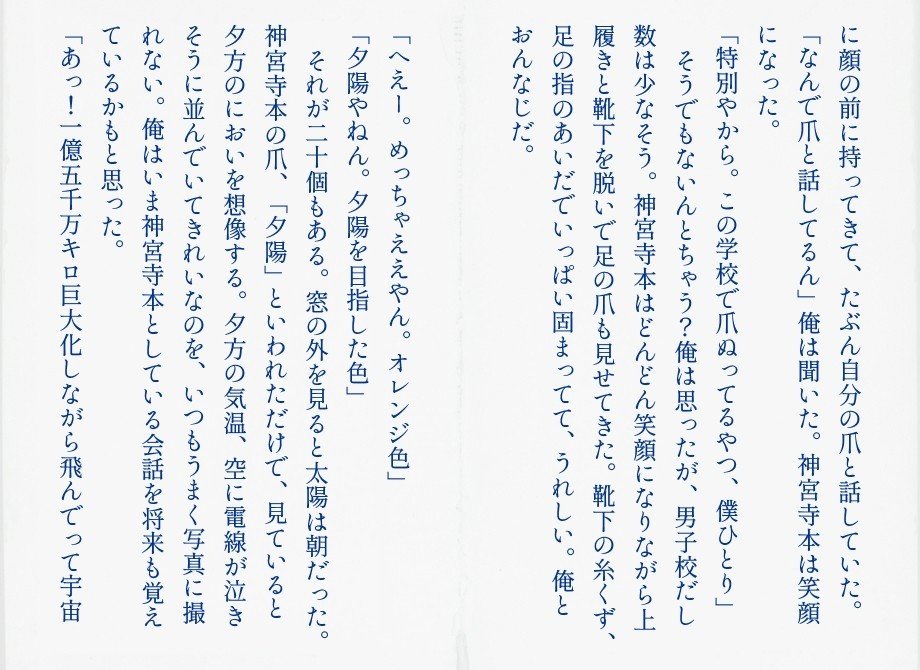 に顔の前に持ってきて、たぶん自分の爪と話していた。
「なんで爪と話してるん」俺は聞いた。神宮寺本は笑顔
になった。
「特別やから。この学校で爪ぬってるやつ、僕ひとり」
そうでもないんとちゃう？俺は思ったが、男子校だし
数は少なそう。神宮寺本はどんどん笑顔になりながら上
履きと靴下を脱いで足の爪も見せてきた。靴下の糸くず、
足の指のあいだでいっぱい固まってて、うれしい。俺と
おんなじだ。
「へえー。めっちゃええやん。オレンジ色」
「夕陽やねん。夕陽を目指した色」
それが二十個もある。窓の外を見ると太陽は朝だった。
神宮寺本の爪、「夕陽」といわれただけで、見ていると
夕方のにおいを想像する。夕方の気温、空に電線が泣き
そうに並んでいてきれいなのを、いつもうまく写真に撮
れない。俺はいま神宮寺本としている会話を将来も覚え
ているかもと思った。
「あっ！一億五千万キロ巨大化しながら飛んでって宇宙